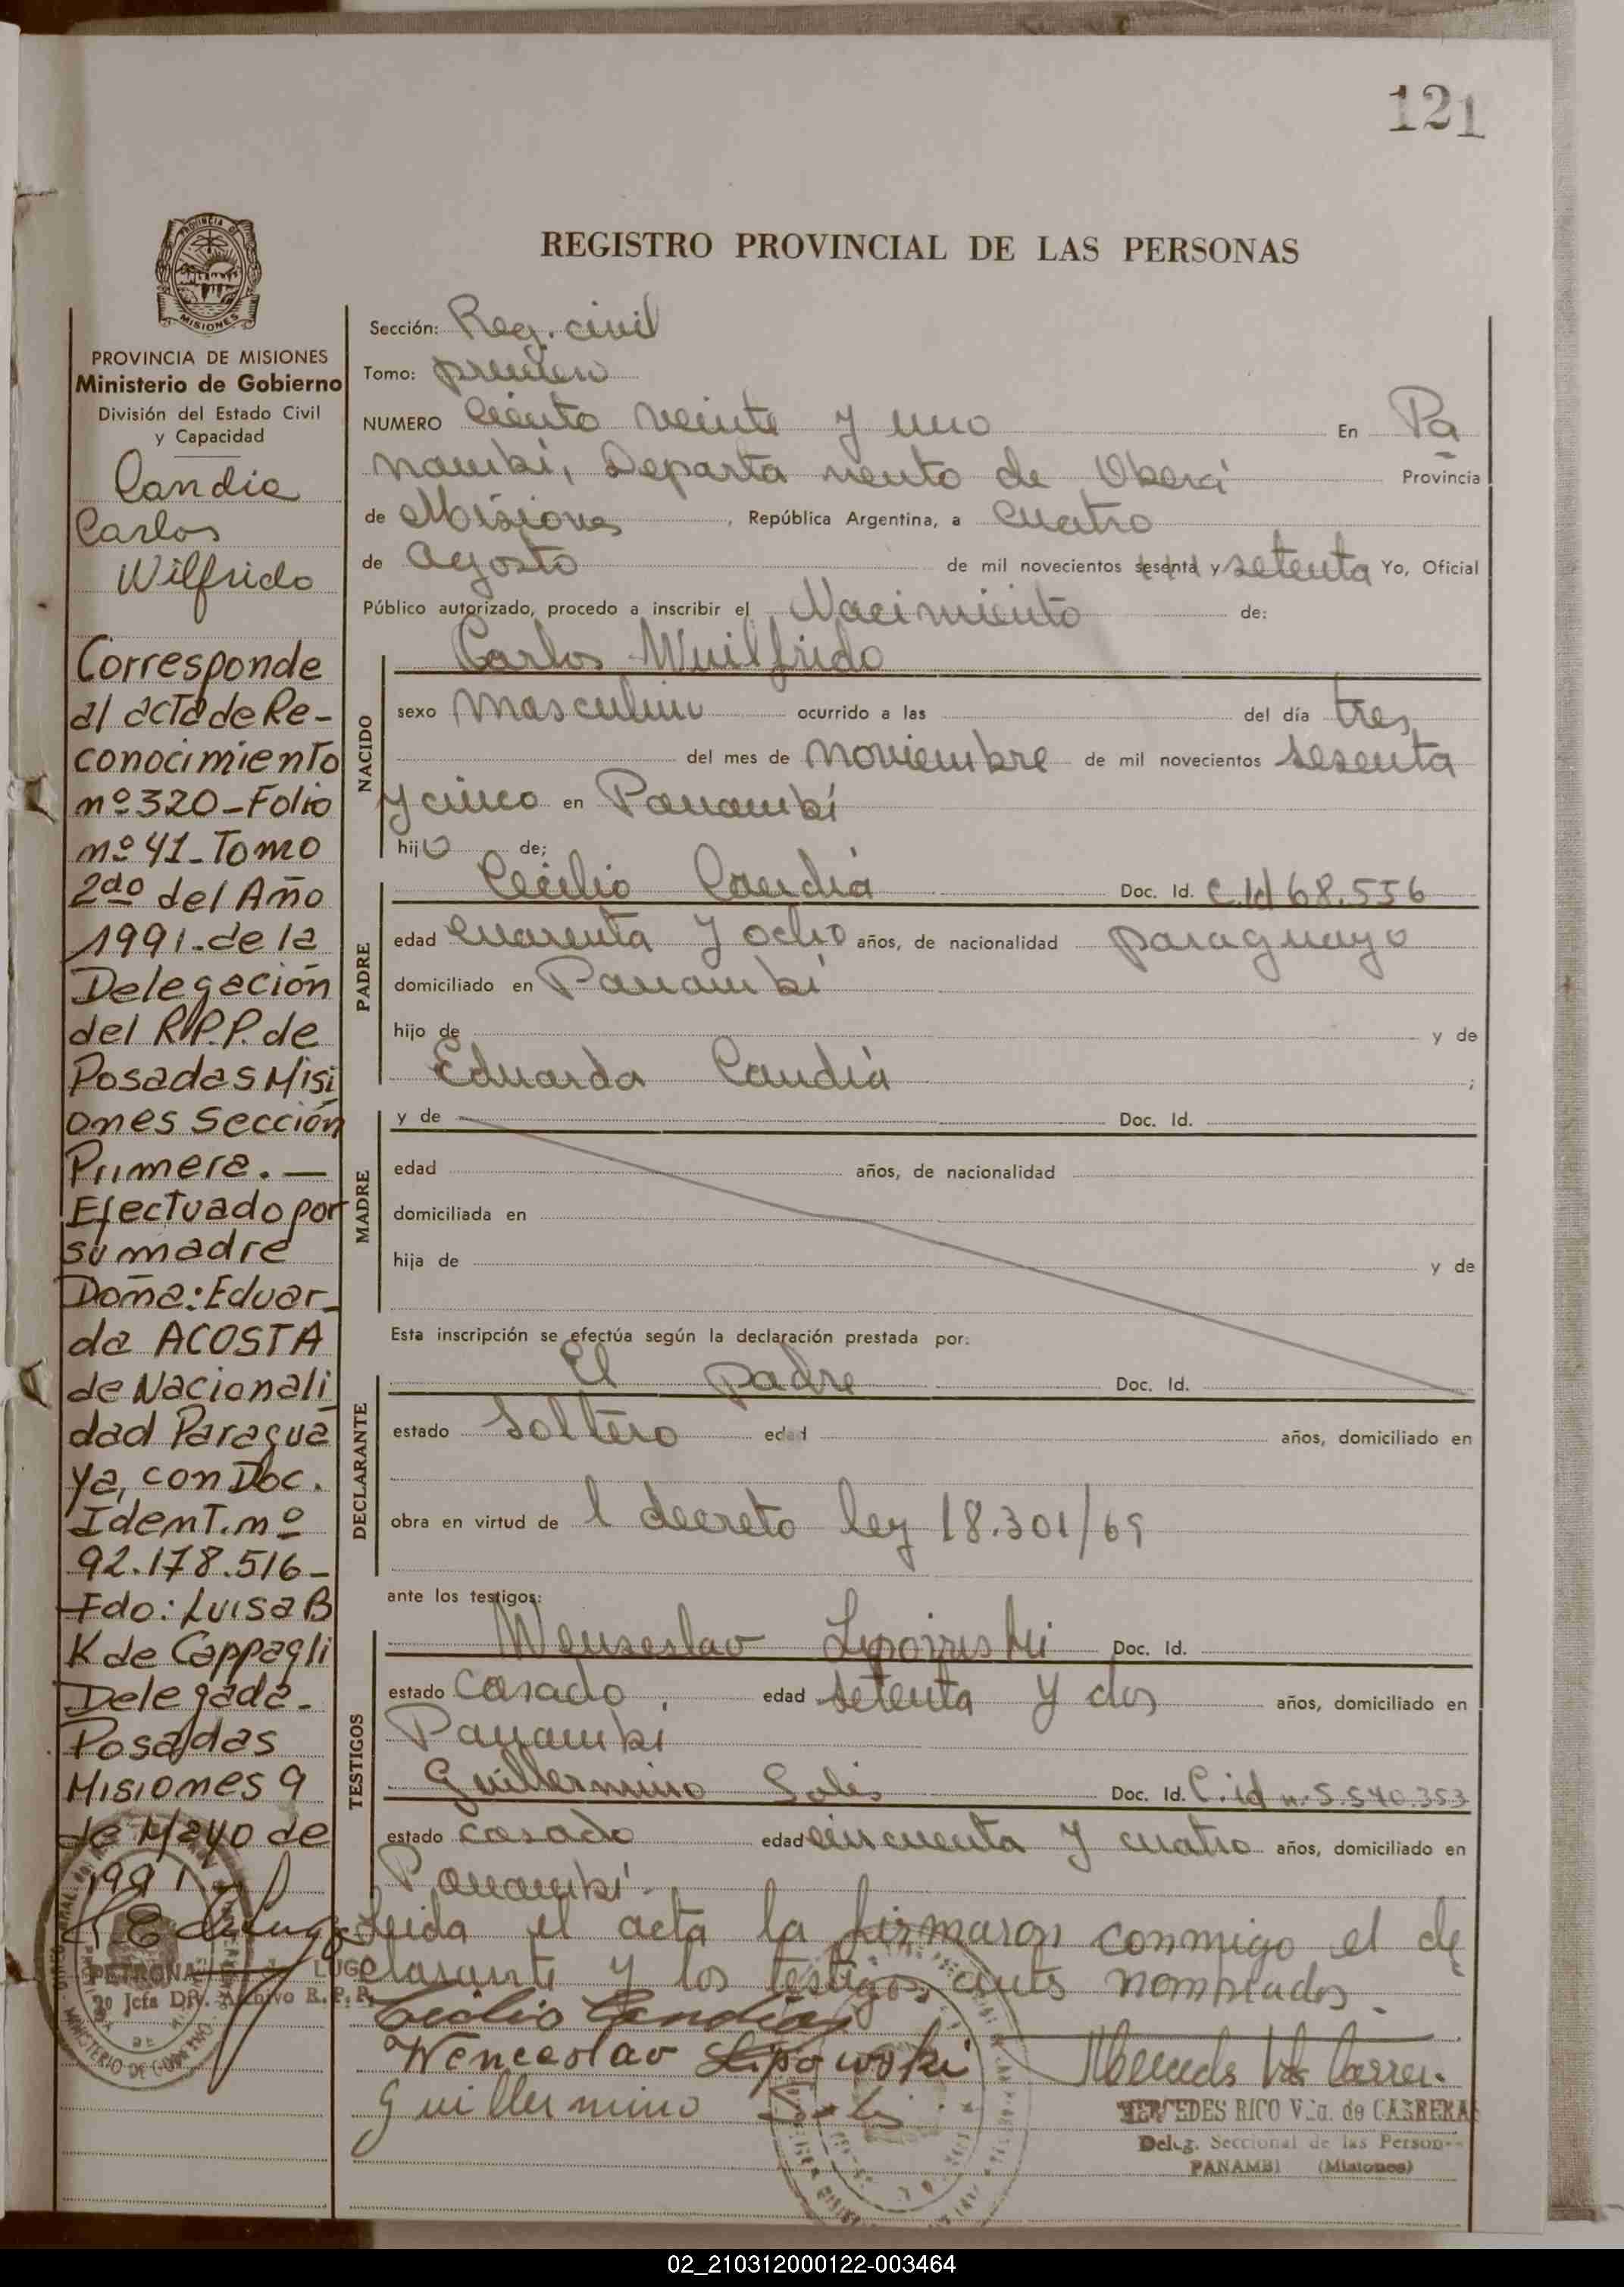 121
REGISTRO PROVINCIAL DE LAS PERSONAS
PROVINCIA DE
MISIONES
PROVINCIA DE MISIONES
Ministerio de Gobierno
División del Estado Civil
y Capacidad
Candia
Carlos
Wilfrido
Corresponde
al acta de Re-
conocimiento
nº 320 - Folio
nº 41 - Tomo
2do del Año
1991 - de la
Delegación
del R.P.P. de
Posadas Misi
ones Sección
Primera. —
Efectuado por
su madre
Doña: Eduar-
da ACOSTA
de Nacionali
dad Paragua
ya, con Doc.
Ident. nº
92.178.516 -
Fdo: Luisa B
K de Cappagli
Delegada -
Posadas
Misiones 9
de Mayo de
1991
PETRONA LUGO
2º Jefa Div. Archivo R. P. P.
MINISTERIO DE
Sección: Reg. civil
Tomo: primero
NUMERO Ciento veinte y uno En Pa
nambí, Departa mento de Oberá Provincia
de Misiones , República Argentina, a cuatro
de agosto de mil novecientos sesenta y setenta Yo, Oficial
Público autorizado, procedo a inscribir el Nacimiento de:
Carlos Wuilfrido
NACIDO
sexo masculino ocurrido a las del día tres
del mes de noviembre de mil novecientos sesenta
y cinco en Panambí
hijo de;
PADRE
Cecilio Candia Doc. Id. C.Id 68.556
edad cuarenta y ocho años, de nacionalidad paraguayo
domiciliado en Panambí
hijo de y de
Eduarda Candia ;
MADRE
y de Doc. Id.
edad años, de nacionalidad
domiciliada en
hija de y de
Esta inscripción se efectúa según la declaración prestada por:
DECLARANTE
El padre Doc. Id.
estado Soltero edad años, domiciliado en
obra en virtud de l decreto ley 18.301/69
ante los testigos:
TESTIGOS
Wenseslao Doc. Id.
estado casado , edad setenta y dos años, domiciliado en
Panambí
Guillermino Solis Doc. Id. C.id n. 5.540.353
estado casado edad cincuenta y cuatro años, domiciliado en
Panambí.
Leida el acta la firmaron conmigo el de
clarante y los testigos ants nombrados.
Cecilio Candia
Wenceslao Lipowski
Guillermino Solis
MERCEDES RICO Vda. de CABRERA
Deleg. Seccional de las Person--
PANAMBI (Misiones)
02_210312000122-003464